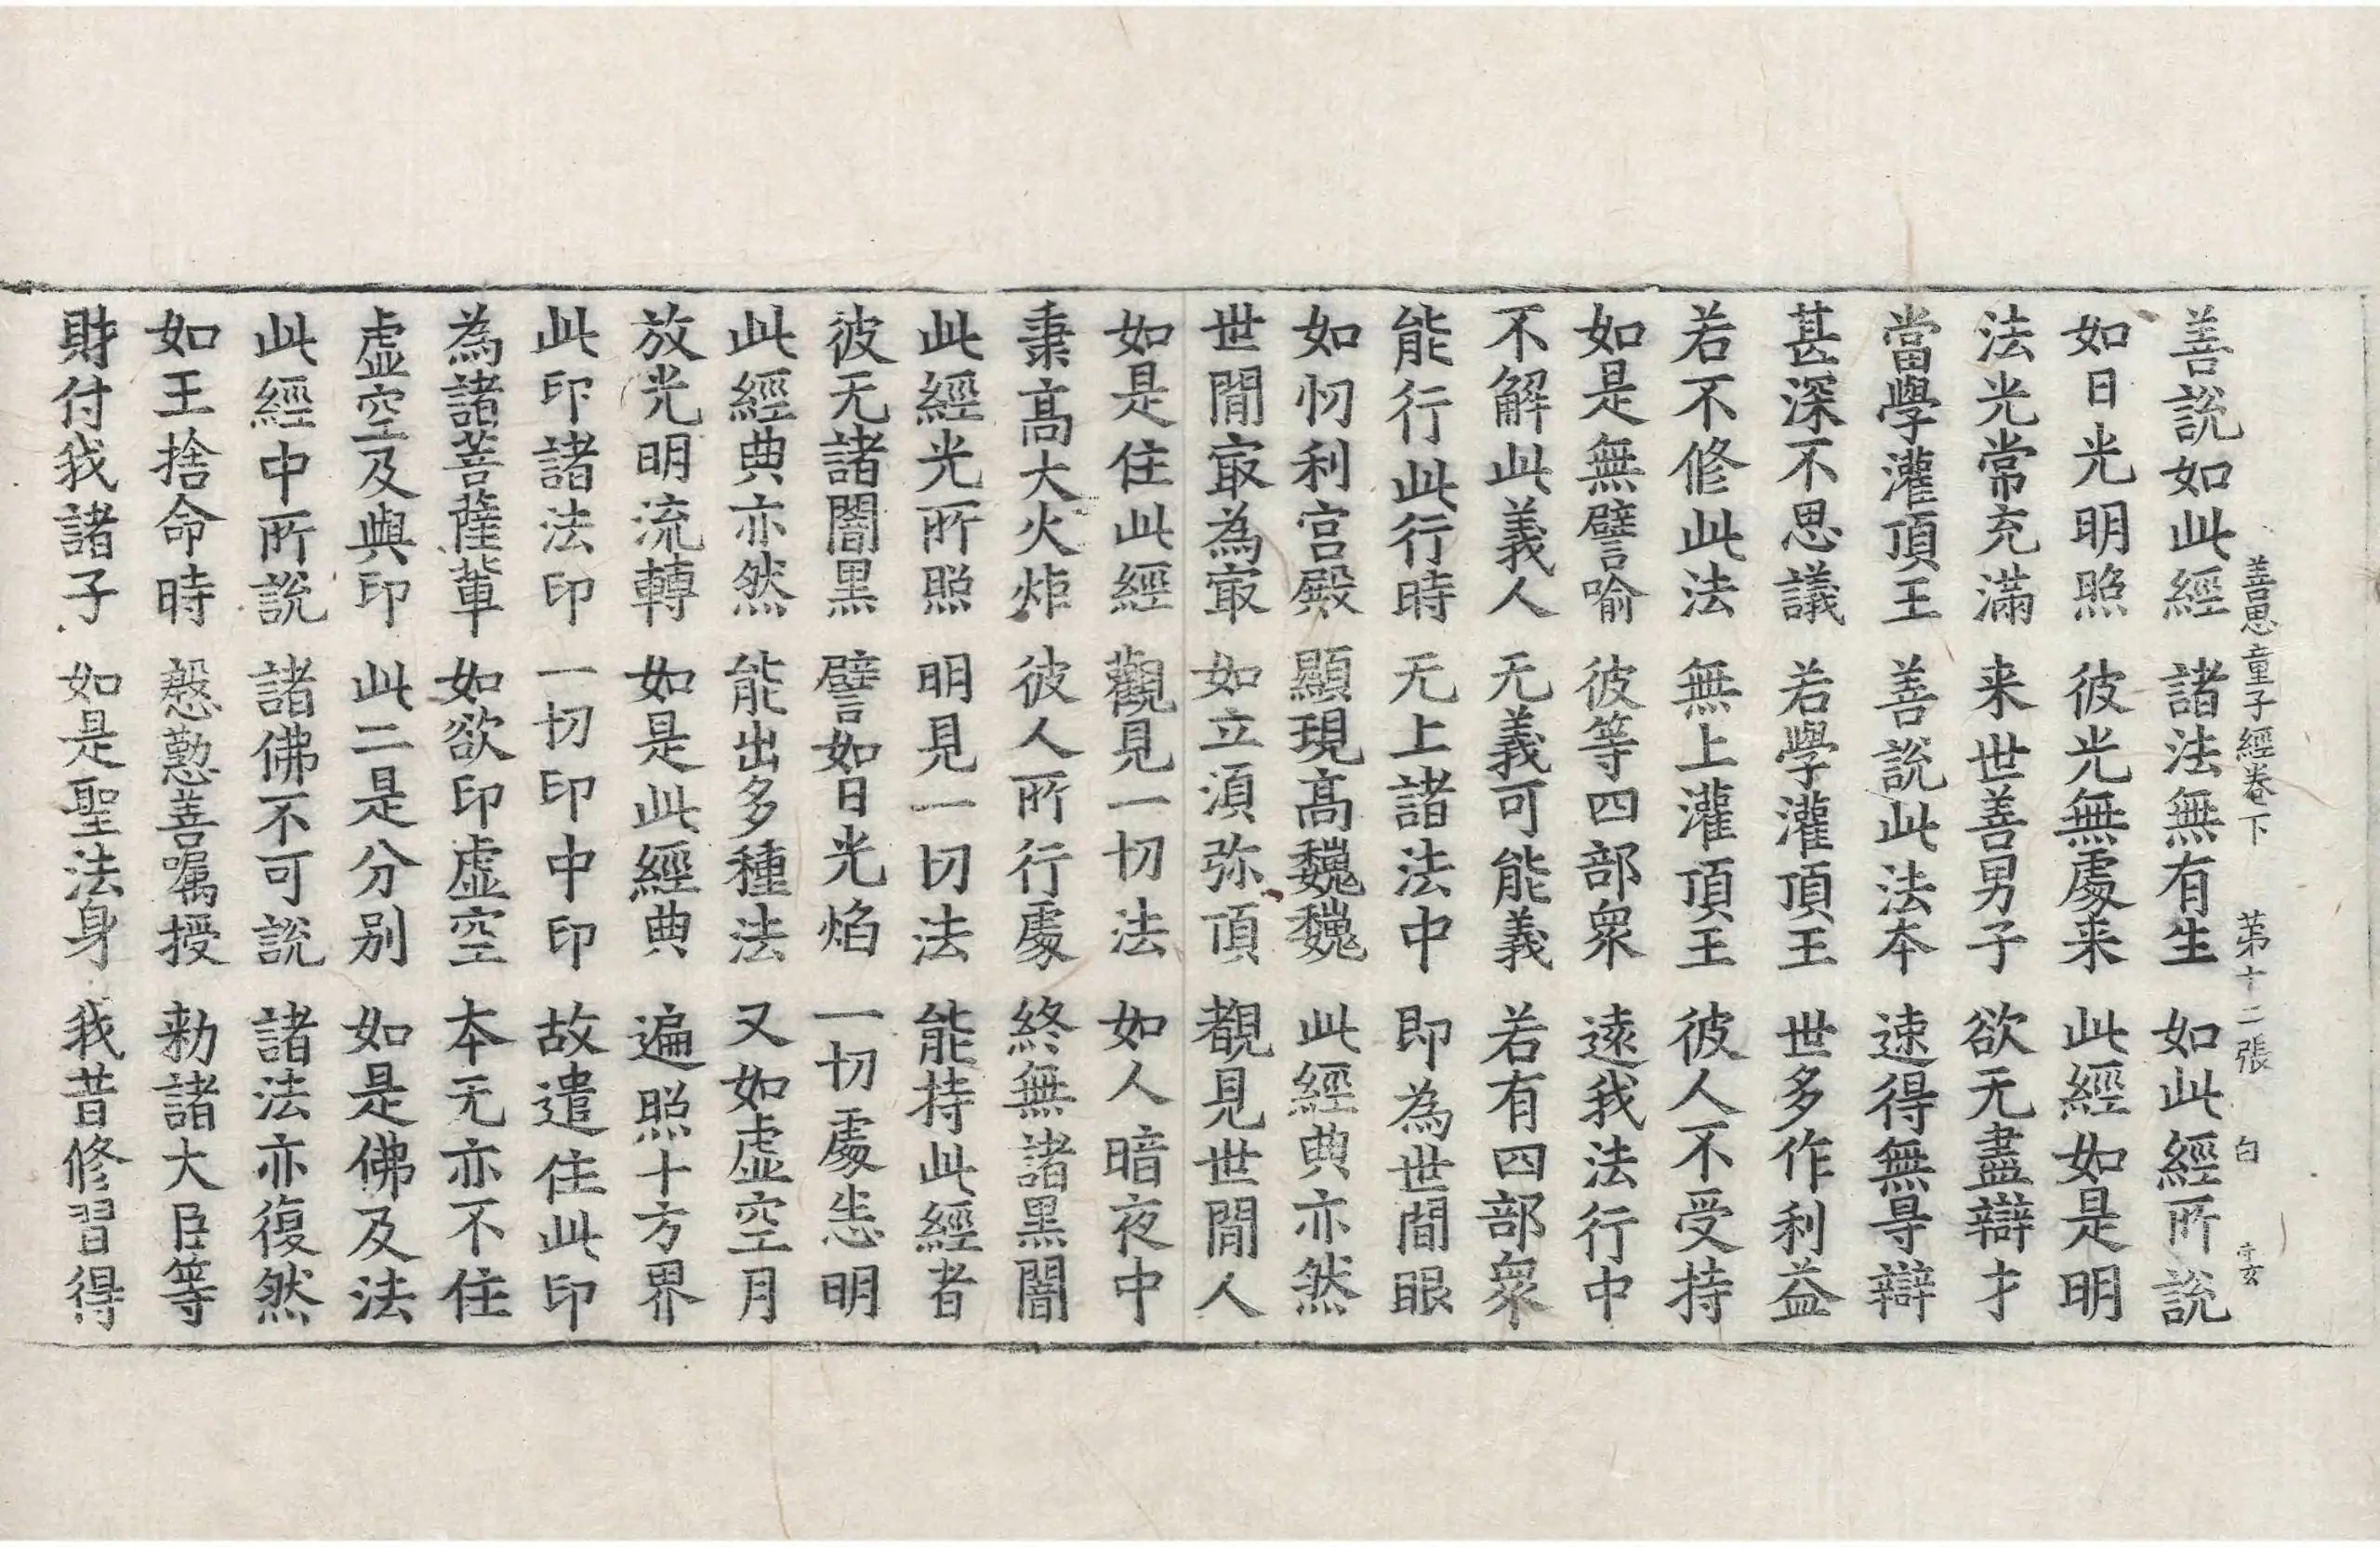 善思童子經卷下 苐十二張 白 守玄
善說如此經 諸法無有生 如此經所說
如日光明照 彼光無處来 此經如是明
法光常充滿 来世善男子 欲无盡辯才
當學灌頂王 善說此法本 速得無㝵辯
甚深不思議 若學灌頂王 世多作利益
若不修此法 無上灌頂王 彼人不受持
如是無譬喻 彼等四部衆 遠我法行中
不解此義人 无義可能義 若有四部衆
能行此行時 无上諸法中 即為世間眼
如忉利宫殿 顯現髙巍巍 此經典亦然
世間㝡為㝡 如立湏弥頂 覩見世間人
如是住此經 觀見一切法 如人暗夜中
秉髙大火炬 彼人所行處 終無諸黒闇
此經光所照 明見一切法 能持此經者
彼无諸闇黒 譬如日光焰 一切處悉明
此經典亦然 能出多種法 又如虚空月
放光明流轉 如是此經典 遍照十方界
此印諸法印 一切印中印 故遣住此印
為諸菩薩輩 如欲印虚空 本无亦不住
虚空及與印 此二是分别 如是佛及法
此經中所說 諸佛不可說 諸法亦復然
如王捨命時 慇懃善嘱授 勑諸大臣等
財付我諸子 如是聖法身 我昔修習得